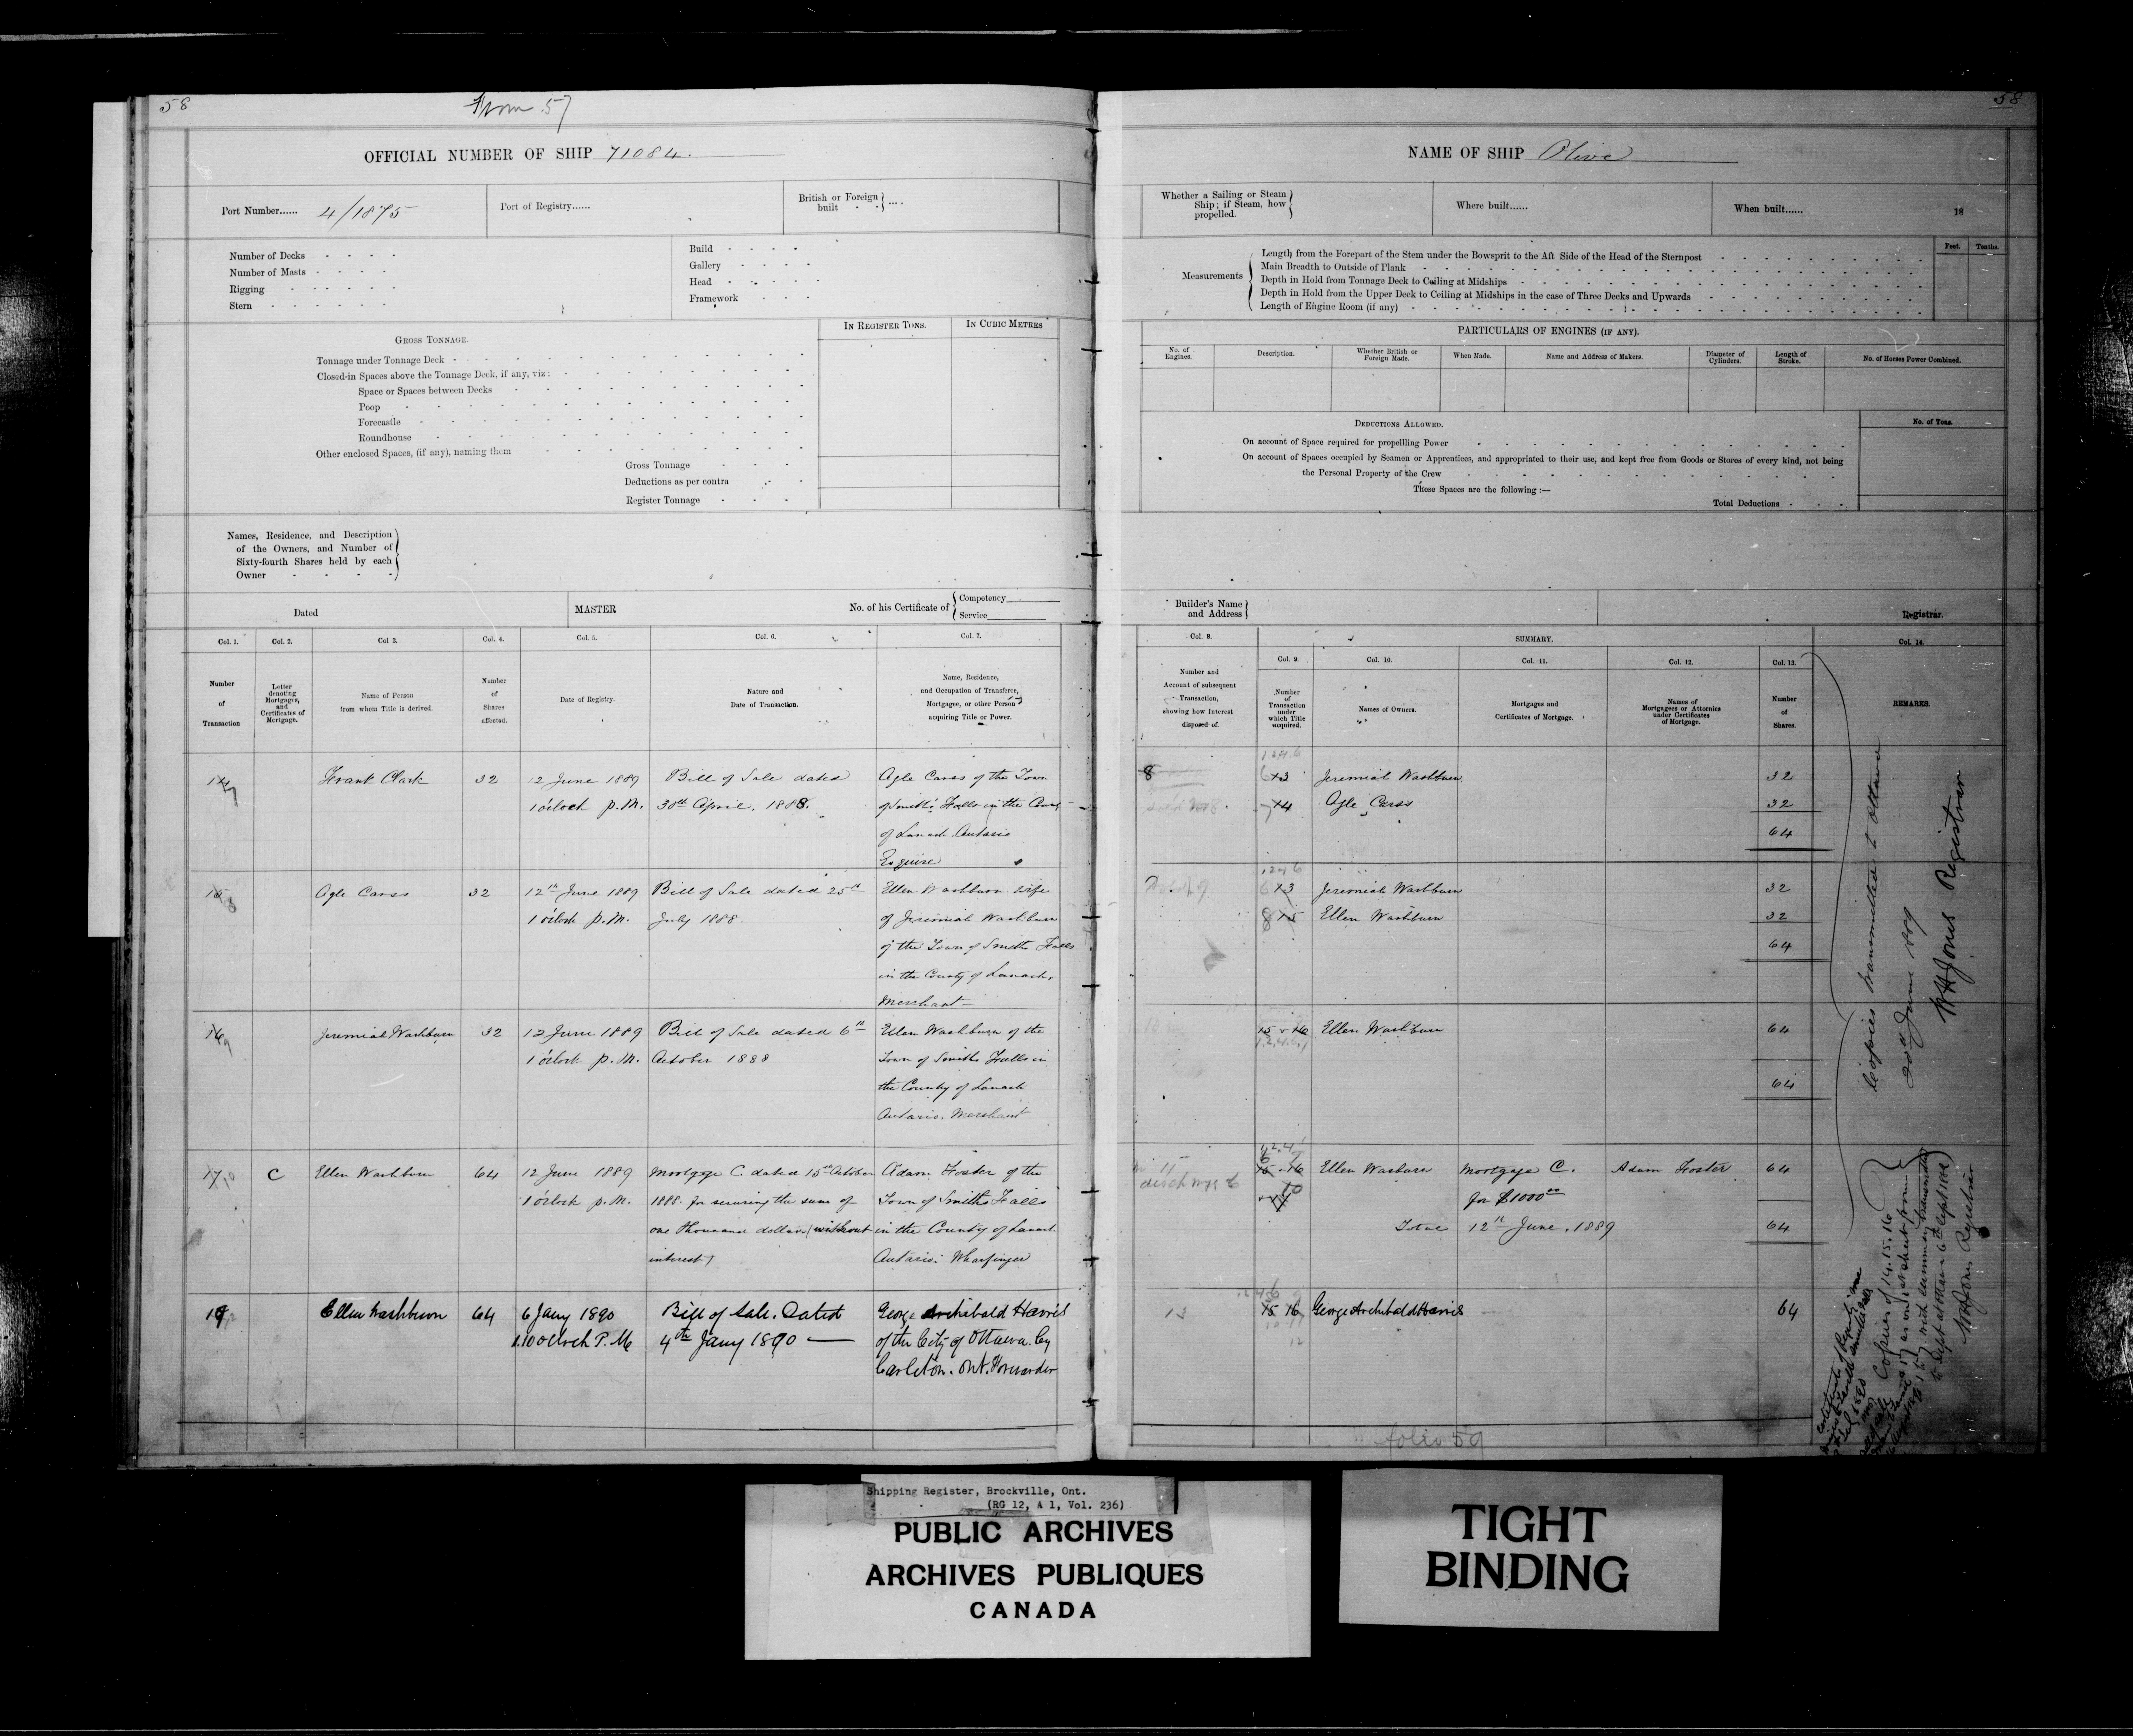 58
From 57
OFFICIAL NUMBER OF SHIP 71084.
Port Number...... 4/1875
Port of Registry......
British or Foreign built - - } ....
Number of Decks - - - -
Number of Masts - - - -
Rigging - - - - -
Stern - - - - - -
Build - - - -
Gallery - - - -
Head - - - -
Framework - - -
GROSS TONNAGE.
IN REGISTER TONS.
IN CUBIC METRES
Tonnage under Tonnage Deck
Closed-in Spaces above the Tonnage Deck, if any, viz:
Space or Spaces between Decks
Poop
Forecastle
Roundhouse
Other enclosed Spaces, (if any), naming them
Gross Tonnage
Deductions as per contra
Register Tonnage
Names, Residence, and Description
of the Owners, and Number of
Sixty-fourth Shares held by each
Owner
Dated
MASTER
No. of his Certificate of { Competency
Service
Col. 1.
Col. 2.
Col 3.
Col. 4.
Col. 5.
Col. 6.
Col. 7.
Number of Transaction
Letter denoting Mortgages, and Certificates of Mortgage.
Name of Person from whom Title is derived.
Number of Shares affected.
Date of Registry.
Nature and Date of Transaction.
Name, Residence, and Occupation of Transferee, Mortgagee, or other Person acquiring Title or Power.
Frank Clark 32 12 June 1889 Bill of Sale dated Agle Carss of the Town
1 o'clock p.M. 30th April. 1888. of Smith's Falls in the County
of Lanark Ontario
Esquire
Agle Carss 32 12th June 1889 Bill of Sale dated 25th Ellen Washburn wife
1 o'clock p.M. July 1888. of Jeremiah Washburn
of the Town of Smiths Falls
in the County of Lanark,
Merchant
16 Jeremiah Washburn 32 12 June 1889 Bill of Sale dated 6th Ellen Washburn of the
1 o'clock p.M. October 1888 Town of Smiths Falls in
the County of Lanark
Ontario. Merchant
17 C Ellen Washburn 64 12 June 1889 Mortgage C. dated 15th October Adam Foster of the
1 o'clock p.M. 1888. for securing the sum of Town of Smiths Falls
one thousand dollars (without in the County of Lanark
interest) Ontario: Wharfinger
Ellen Washburn 64 6 Jany 1890 Bill of Sale. Dated George Archibald Harris
1.10 o'Clock P.M 4th Jany 1890 of the City of Ottawa. Cy
Carleton. Ont. Forwarder
58
NAME OF SHIP Olive
Whether a Sailing or Steam
Ship; if Steam, how
propelled.
Where built......
When built...... 18
Measurements
Feet.
Tenths.
Length from the Forepart of the Stem under the Bowsprit to the Aft Side of the Head of the Sternpost
Main Breadth to Outside of Plank
Depth in Hold from Tonnage Deck to Ceiling at Midships
Depth in Hold from the Upper Deck to Ceiling at Midships in the case of Three Decks and Upwards
Length of Engine Room (if any)
PARTICULARS OF ENGINES (IF ANY).
No. of Engines.
Description.
Whether British or Foreign Made.
When Made.
Name and Address of Makers.
Diameter of Cylinders.
Length of Stroke.
No. of Horses Power Combined.
DEDUCTIONS ALLOWED.
No. of Tons.
On account of Space required for propellling Power
On account of Spaces occupied by Seamen or Apprentices, and appropriated to their use, and kept free from Goods or Stores of every kind, not being
the Personal Property of the Crew
These Spaces are the following :—
Total Deductions
Builder's Name
and Address
Registrar.
Col. 8.
SUMMARY.
Col. 14.
Col. 9.
Col. 10.
Col. 11.
Col. 12.
Col. 13.
Number and Account of subsequent Transaction, showing how Interest disposed of.
Number of Transaction under which Title acquired.
Names of Owners.
Mortgages and Certificates of Mortgage.
Names of Mortgagees or Attornies under Certificates of Mortgage.
Number of Shares.
REMARKS.
8 Jeremiah Washburn 32
Agle Carss 32
64
Jeremiah Washburn 32
Ellen Washburn 32
64
15 + 16 Ellen Washburn 64
64
Ellen Wasburn Mortgage C. Adam Foster 64
for $1000.00
Total 12th June, 1889 64
15 16 George Archibald Harris 64
folio 59
Copies transmitted to Ottawa
20th June 1889
W H Jones Registrar
Copies of 14. 15. 16
W H Jones Registrar
Shipping Register, Brockville, Ont.
(RG 12, A 1, Vol. 236)
PUBLIC ARCHIVES
ARCHIVES PUBLIQUES
CANADA
TIGHT
BINDING